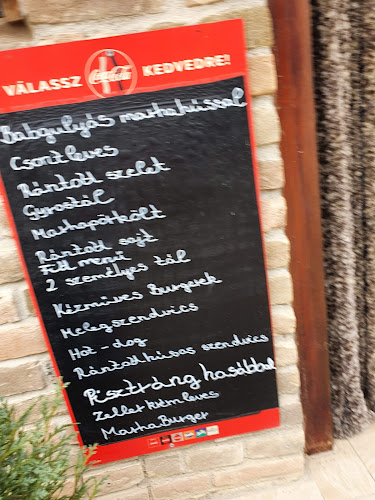 VÁLASSZ Coca-Cola KEDVEDRE!
Babgulyás marhahússal
Csontleves
Rántott szelet
Gyrostál
Marhapörkölt
Rántott sajt
Fitt menü
2 személyes tál
Kézműves Burgerek
Melegszendvics
Hot-dog
Rántotthúsos szendvics
Pisztráng hasábbal
Zeller krémleves
MarhaBurger